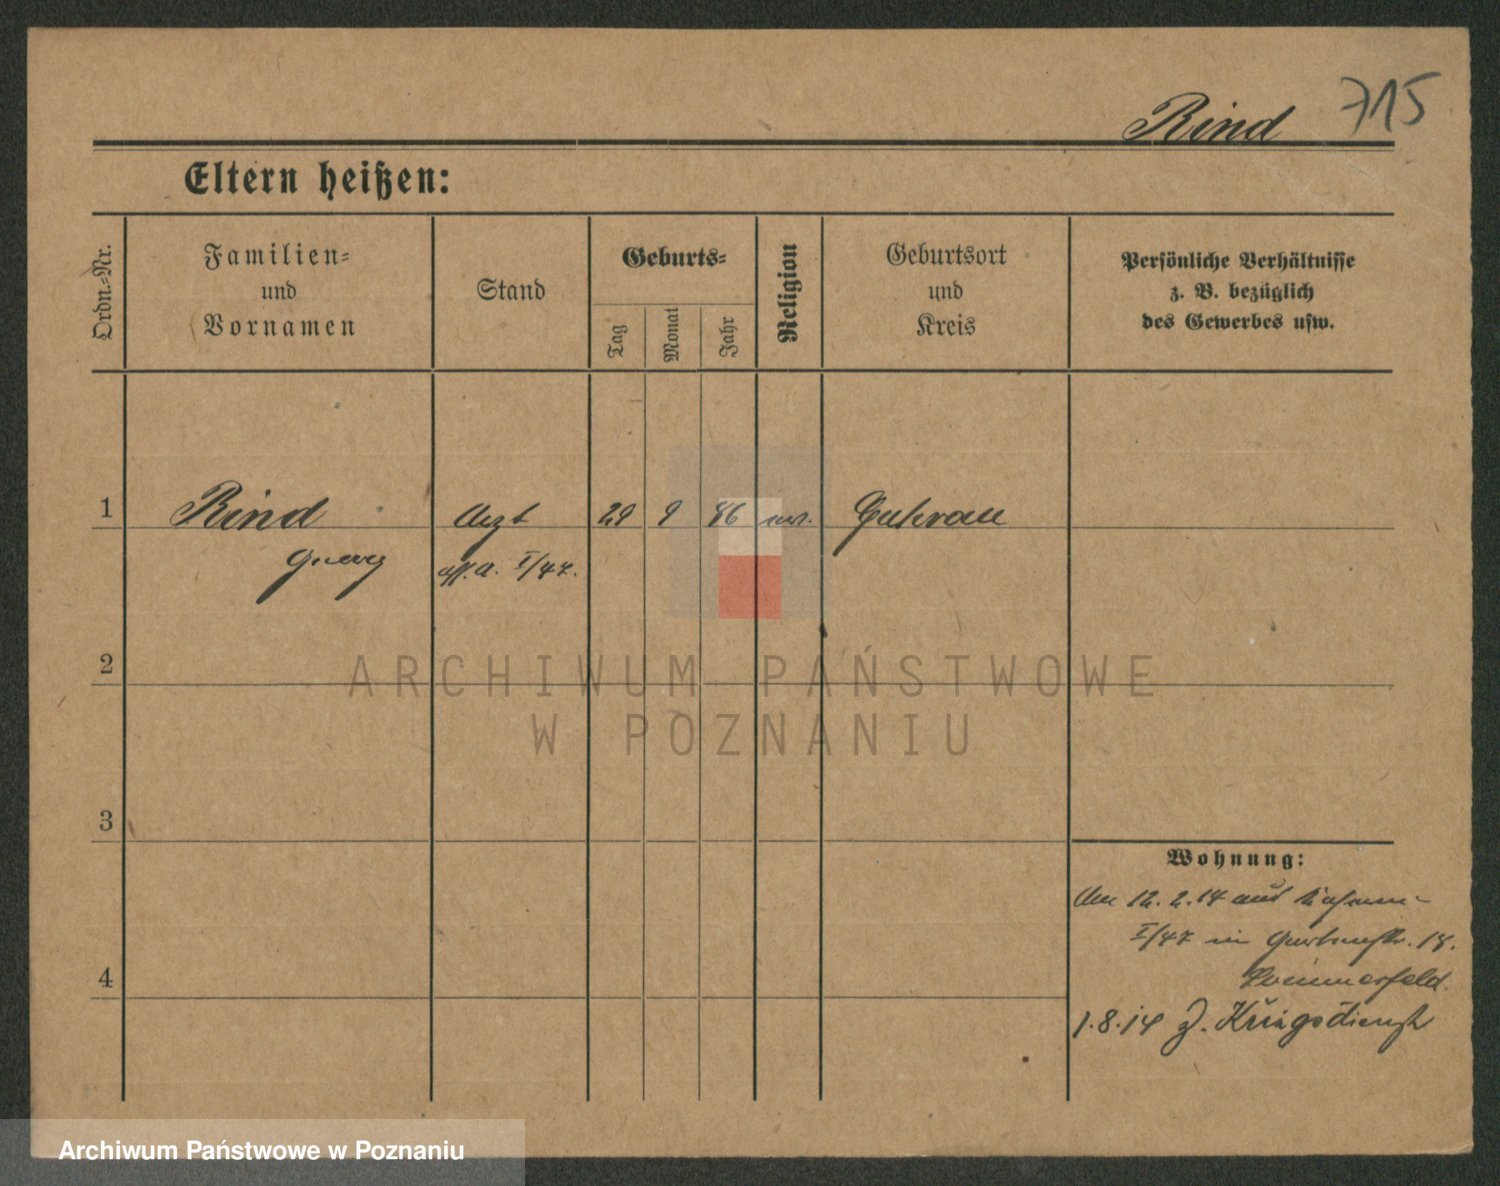 Rind 715
Eltern heißen:
Ordn.-Nr.
Familien-
und
Vornamen
Stand
Geburts-
Tag
Monat
Jahr
Religion
Geburtsort
und
Kreis
Persönliche Verhältnisse
z. B. bezüglich
des Gewerbes usw.
1 Rind Arzt 29 9 86 Guhrau
Georg I/47.
2
ARCHIWUM PAŃSTWOWE
W POZNANIU
3
Wohnung:
Am 12.2.14 aus
I/47 in 18.
4 Sommerfeld.
1.8.14 z. Kriegsdienst
Archiwum Państwowe w Poznaniu